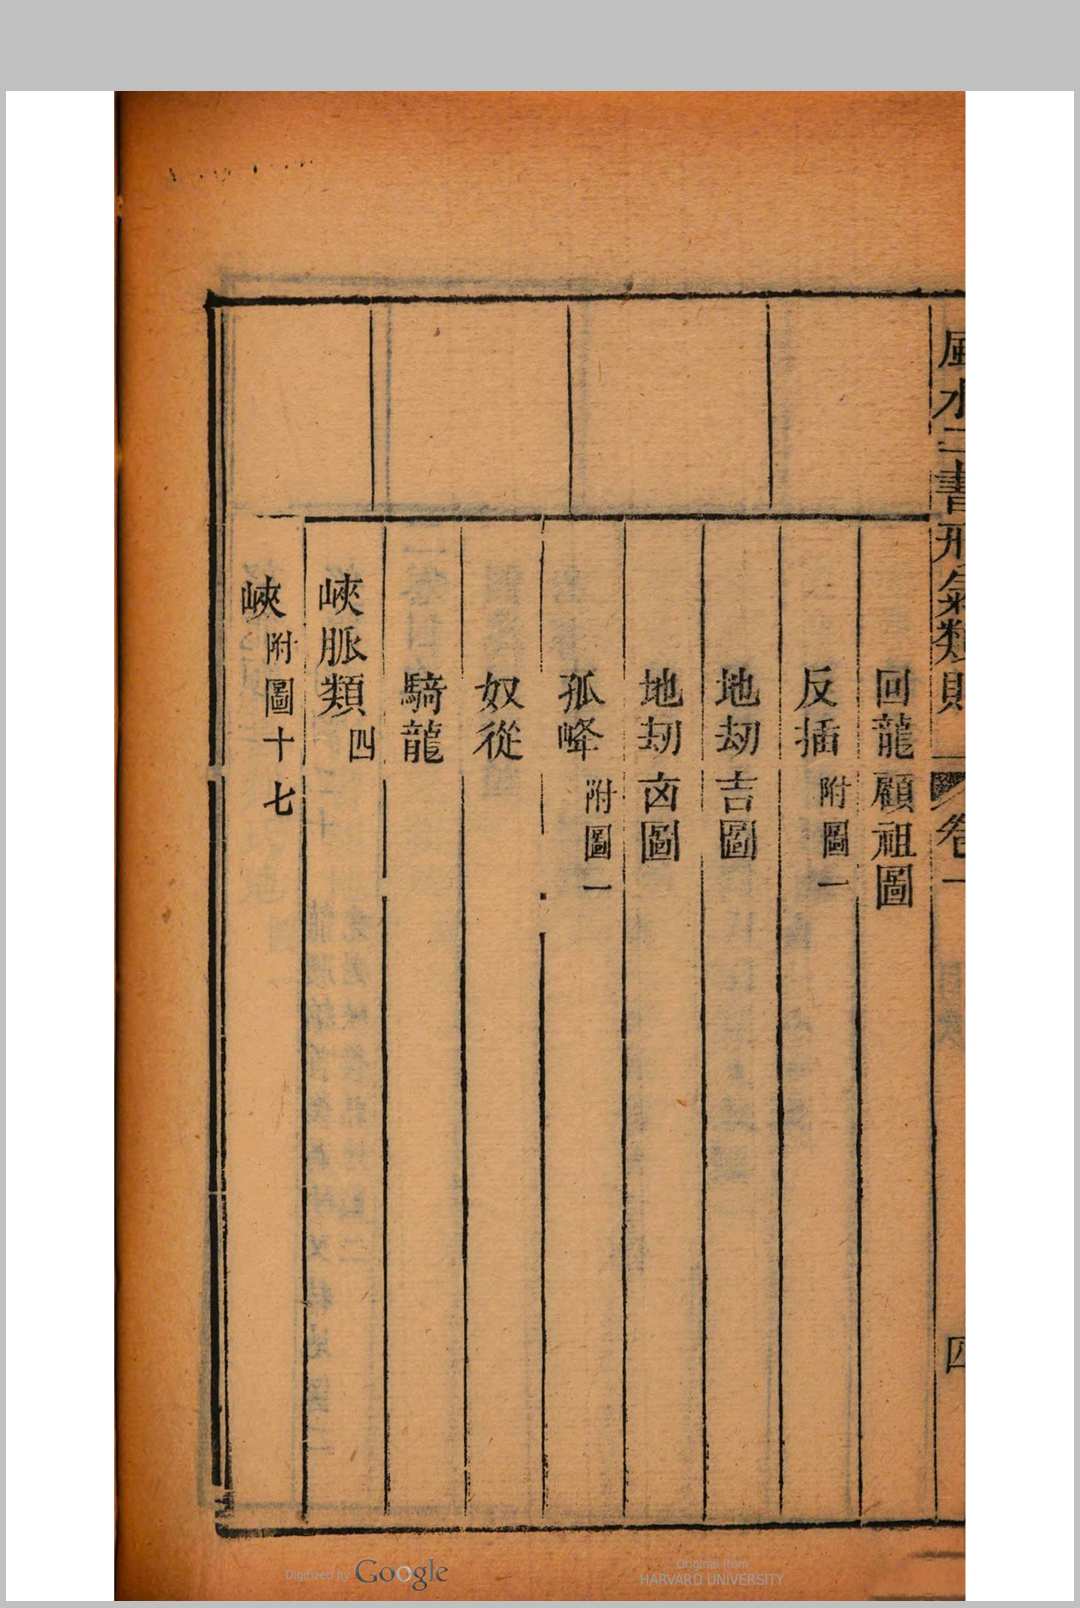 風水二書形氣類則 卷一 四
回龍顧祖圖
反插 附圖一
地刼吉圖
地刼凶圖
孤峰 附圖一
奴從
騎龍
峽脈類 四
峽 附圖十七
Digitized by Google
Original from
HARVARD UNIVERSITY